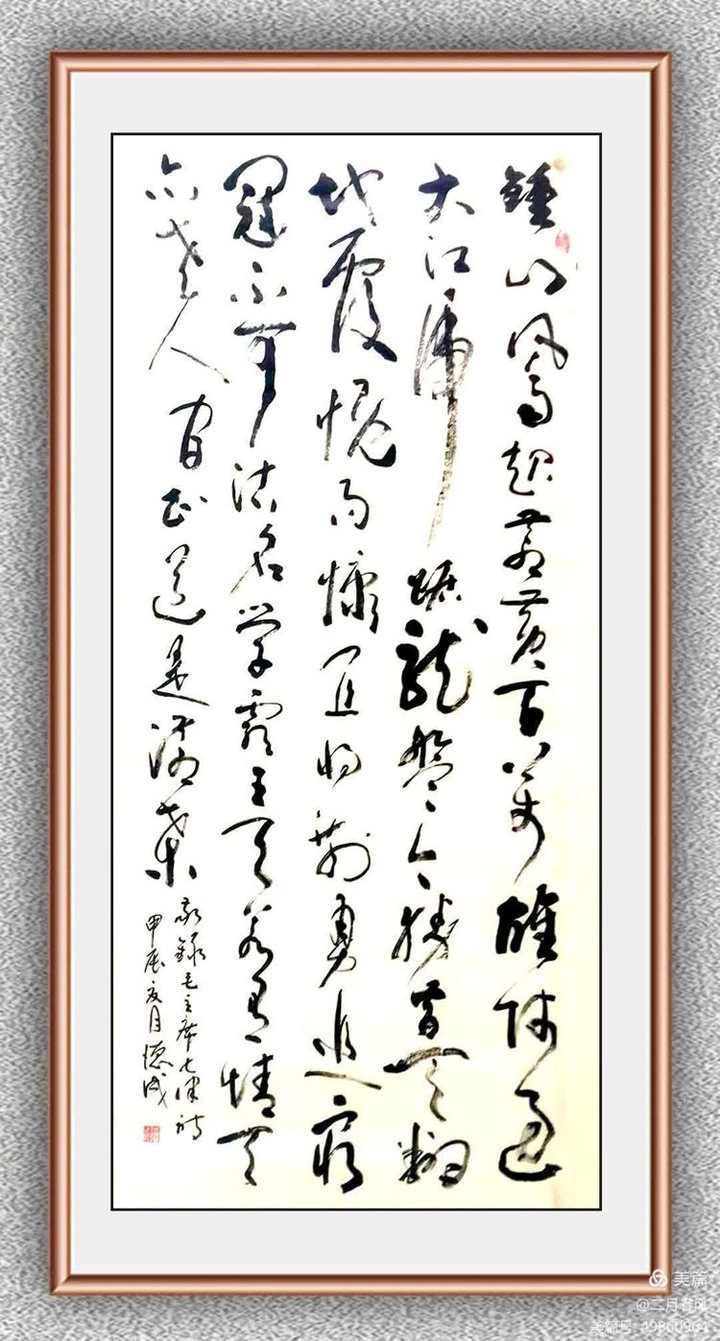 鍾山风雨起蒼黄百萬雄师過
大江虎踞龍盤今勝昔天翻
地覆慨而慷宜将剩勇追窮
寇不可沽名学霸王天若有情天
亦老人间正道是滄桑
敬録毛主席七律詩
甲辰夏月德成
美篇
@二月春风
美篇号:49860964